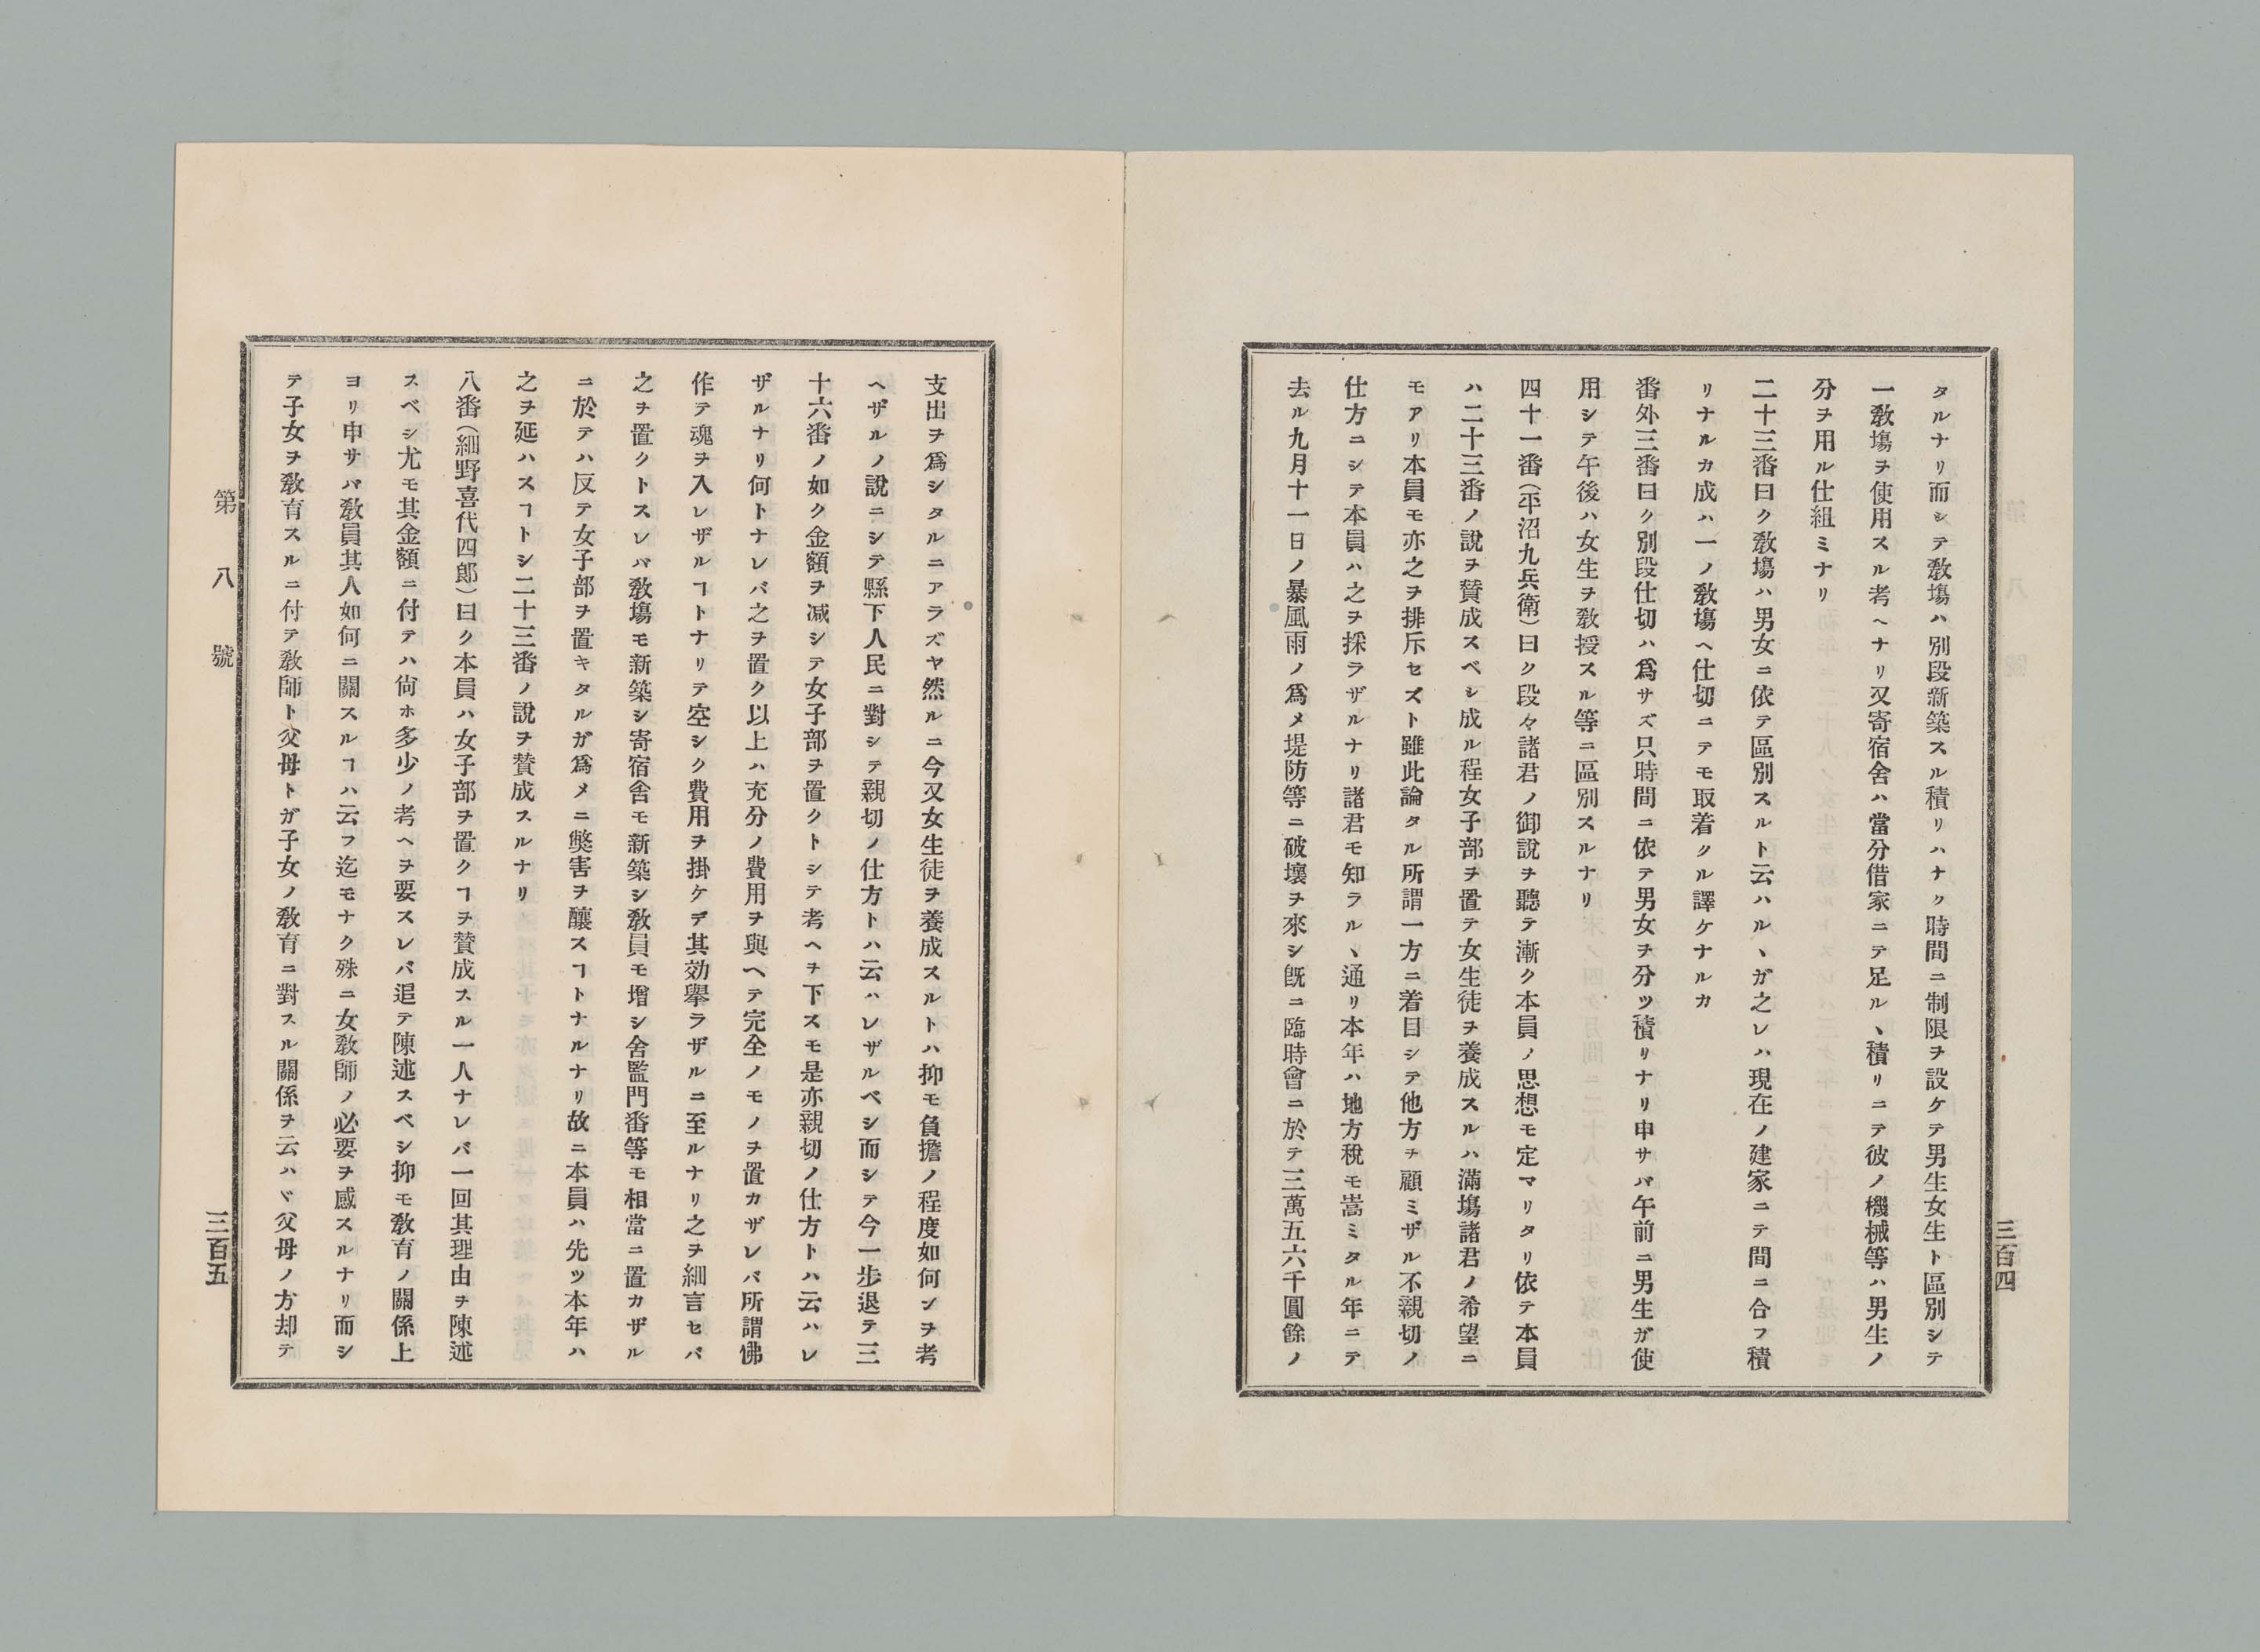 三百四
タルナリ而シテ敎塲ハ別段新築スル積リハナク時間ニ制限ヲ設ケテ男生女生ト區別シテ
一敎塲ヲ使用スル考ヘナリ又寄宿舍ハ當分借家ニテ足ルヽ積リニテ彼ノ機械等ハ男生ノ
分ヲ用ル仕組ミナリ
二十三番曰ク敎塲ハ男女ニ依テ區別スルト云ハルヽガ之レハ現在ノ建家ニテ間ニ合フ積
リナルカ成ハ一ノ敎塲ヘ仕切ニテモ取着クル譯ケナルカ
番外三番曰ク別段仕切ハ爲サズ只時間ニ依テ男女ヲ分ツ積リナリ申サバ午前ニ男生ガ使
用シテ午後ハ女生ヲ敎授スル等ニ區別スルナリ
四十一番(平沼九兵衛)曰ク段々諸君ノ御說ヲ聽テ漸ク本員ノ思想モ定マリタリ依テ本員
ハ二十三番ノ說ヲ賛成スベシ成ル程女子部ヲ置テ女生徒ヲ養成スルハ滿塲諸君ノ希望ニ
モアリ本員モ亦之ヲ排斥セズト雖此論タル所謂一方ニ着目シテ他方ヲ顧ミザル不親切ノ
仕方ニシテ本員ハ之ヲ採ラザルナリ諸君モ知ラルヽ通リ本年ハ地方稅モ嵩ミタル年ニテ
去ル九月十一日ノ暴風雨ノ爲メ堤防等ニ破壞ヲ來シ旣ニ臨時會ニ於テ三萬五六千圓餘ノ
支出ヲ爲シタルニアラズヤ然ルニ今又女生徒ヲ養成スルトハ抑モ負擔ノ程度如何ンヲ考
ヘザルノ說ニシテ縣下人民ニ對シテ親切ノ仕方トハ云ハレザルベシ而シテ今一步退テ三
十六番ノ如ク金額ヲ減シテ女子部ヲ置クトシテ考ヘヲ下スモ是亦親切ノ仕方トハ云ハレ
ザルナリ何トナレバ之ヲ置ク以上ハ充分ノ費用ヲ與ヘテ完全ノモノヲ置カザレバ所謂佛
作テ魂ヲ入レザルヿトナリテ空シク費用ヲ掛ケデ其効擧ラザルニ至ルナリ之ヲ細言セバ
之ヲ置クトスレバ敎塲モ新築シ寄宿舍モ新築シ敎員モ增シ舍監門番等モ相當ニ置カザル
ニ於テハ反テ女子部ヲ置キタルガ爲メニ獘害ヲ釀スヿトナルナリ故ニ本員ハ先ツ本年ハ
之ヲ延ハスヿトシ二十三番ノ說ヲ賛成スルナリ
八番(細野喜代四郎)曰ク本員ハ女子部ヲ置クヿヲ賛成スル一人ナレバ一回其理由ヲ陳述
スベシ尤モ其金額ニ付テハ尙ホ多少ノ考ヘヲ要スレバ追テ陳述スベシ抑モ敎育ノ關係上
ヨリ申サバ敎員其人如何ニ關スルヿハ云フ迄モナク殊ニ女敎師ノ必要ヲ感スルナリ而シ
テ子女ヲ敎育スルニ付テ敎師ト父母トガ子女ノ敎育ニ對スル關係ヲ云ハヾ父母ノ方却テ
第八號
三百五